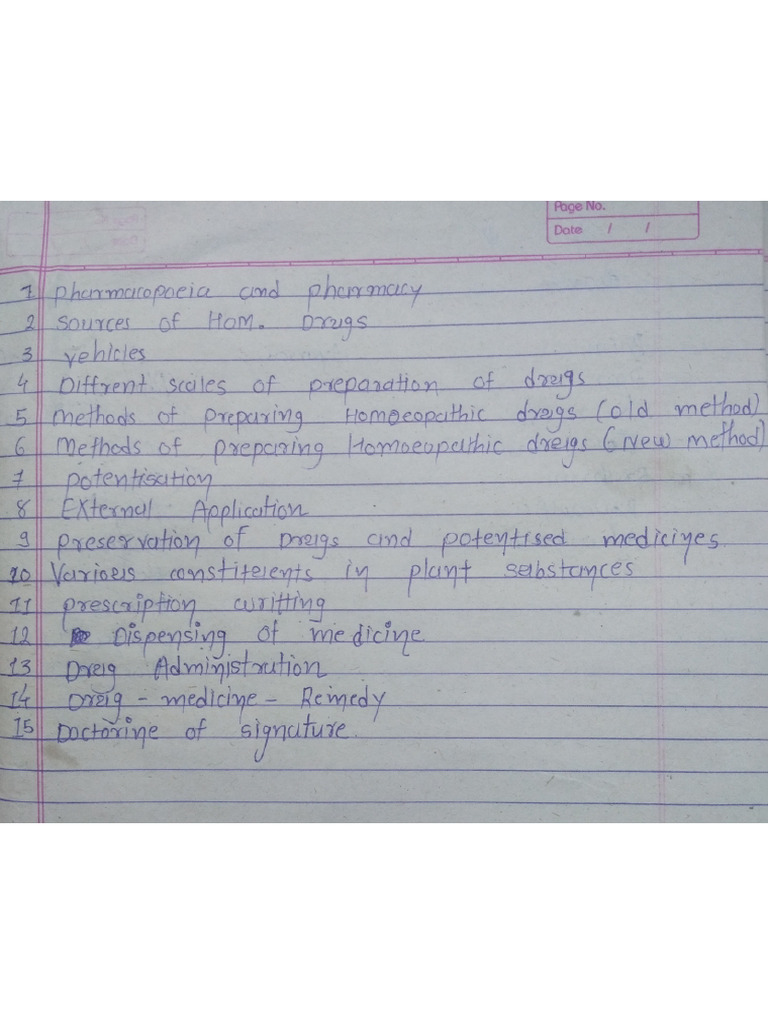 Page No.
Date / /
1 Pharmacopoeia and pharmacy
2 Sources of Hom. Drugs
3 vehicles
4 Diffrent scales of preparation of drugs
5 Methods of preparing Homoeopathic drugs (old method)
6 Methods of preparing Homoeopathic drugs (New method)
7 potentisation
8 External Application
9 preservation of Drugs and potentised medicines.
10 Various constituents in plant substances
11 prescription writting
12 Dispensing of medicine
13 Drug Administration
14 Drug - medicine - Remedy
15 Doctorine of signature.